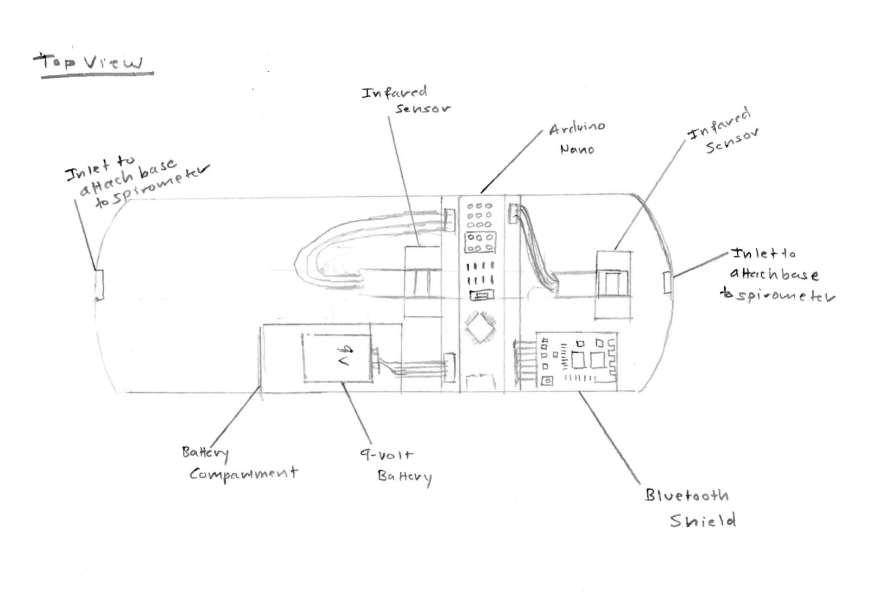 Top View
Infared
Sensor
Arduino
Nano
Infared
Sensor
Inlet to
attach base
to spirometer
Inlet to
attach base
to spirometer
9v
Battery
Compartment
9-volt
Battery
Bluetooth
Shield